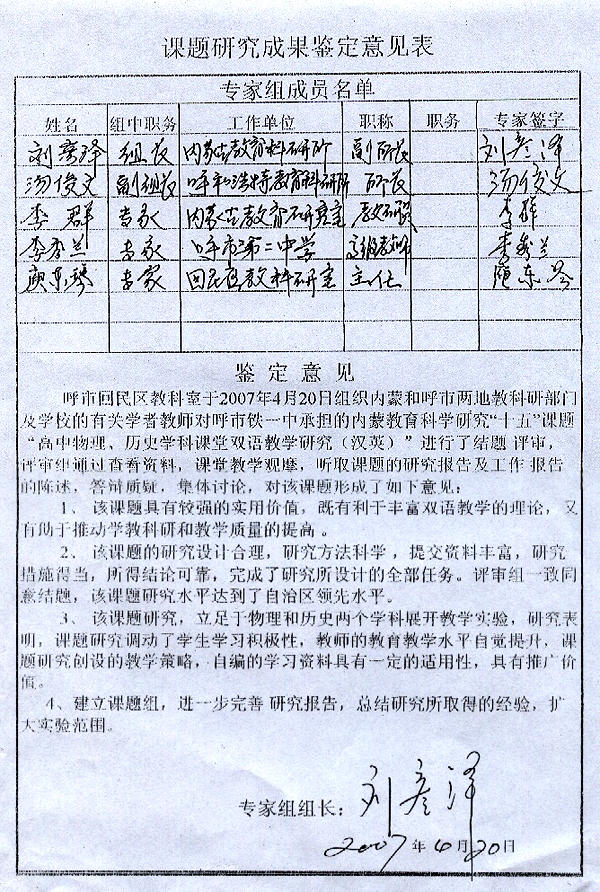 课题研究成果鉴定意见表
专家组成员名单
姓名 组中职务 工作单位 职称 职务 专家签字
刘彦泽 组长 内蒙古教育科研所 副所长 刘彦泽
汤俊文 副组长 呼和浩特教育科研所 所长 汤俊文
李群 专家 内蒙古教育研究室 教研员 李群
李秀兰 专家 呼市第二中学 高级教师 李秀兰
顾东琴 专家 回民区教科研室 主任 顾东琴
鉴定意见
呼市回民区教科室于2007年4月20日组织内蒙和呼市两地教科研部门
及学校的有关学者教师对呼市铁一中承担的内蒙教育科学研究“十五”课题
“高中物理、历史学科课堂双语教学研究（汉英）”进行了结题 评审，
评审组通过查看资料，课堂教学观摩，听取课题的研究报告及工作 报告
的陈述，答辩质疑，集体讨论，对该课题形成了如下意见：
1、 该课题具有较强的实用价值，既有利于丰富双语教学的理论，又
有助于推动学教科研和教学质量的提高 。
2、 该课题的研究设计合理，研究方法科学 ，提交资料丰富，研究
措施得当，所得结论可靠，完成了研究所设计的全部任务。评审组一致同
意结题，该课题研究水平达到了自治区领先水平。
3、 该课题研究，立足于物理和历史两个学科展开教学实验，研究表
明，课题研究调动了学生学习积极性，教师的教育教学水平自觉提升，课
题研究创设的教学策略，自编的学习资料具有一定的适用性，具有推广价
值。
4、建立课题组，进一步完善 研究报告，总结研究所取得的经验，扩
大实验范围。
专家组组长：刘彦泽
2007年4月20日